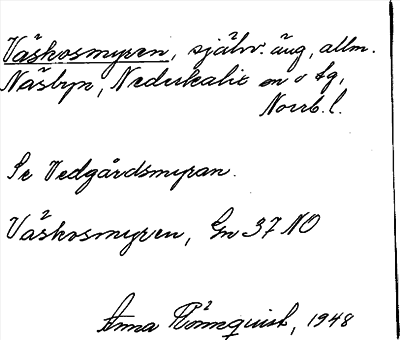 Väskosmyren, självv. äng, allm.
Näsbyn, Nederkalix sn o tg,
Norrb. l.
Se Vedgårdsmyran.
Väskosmyren, Gn 37 NO
Anna Rönnquist, 1948